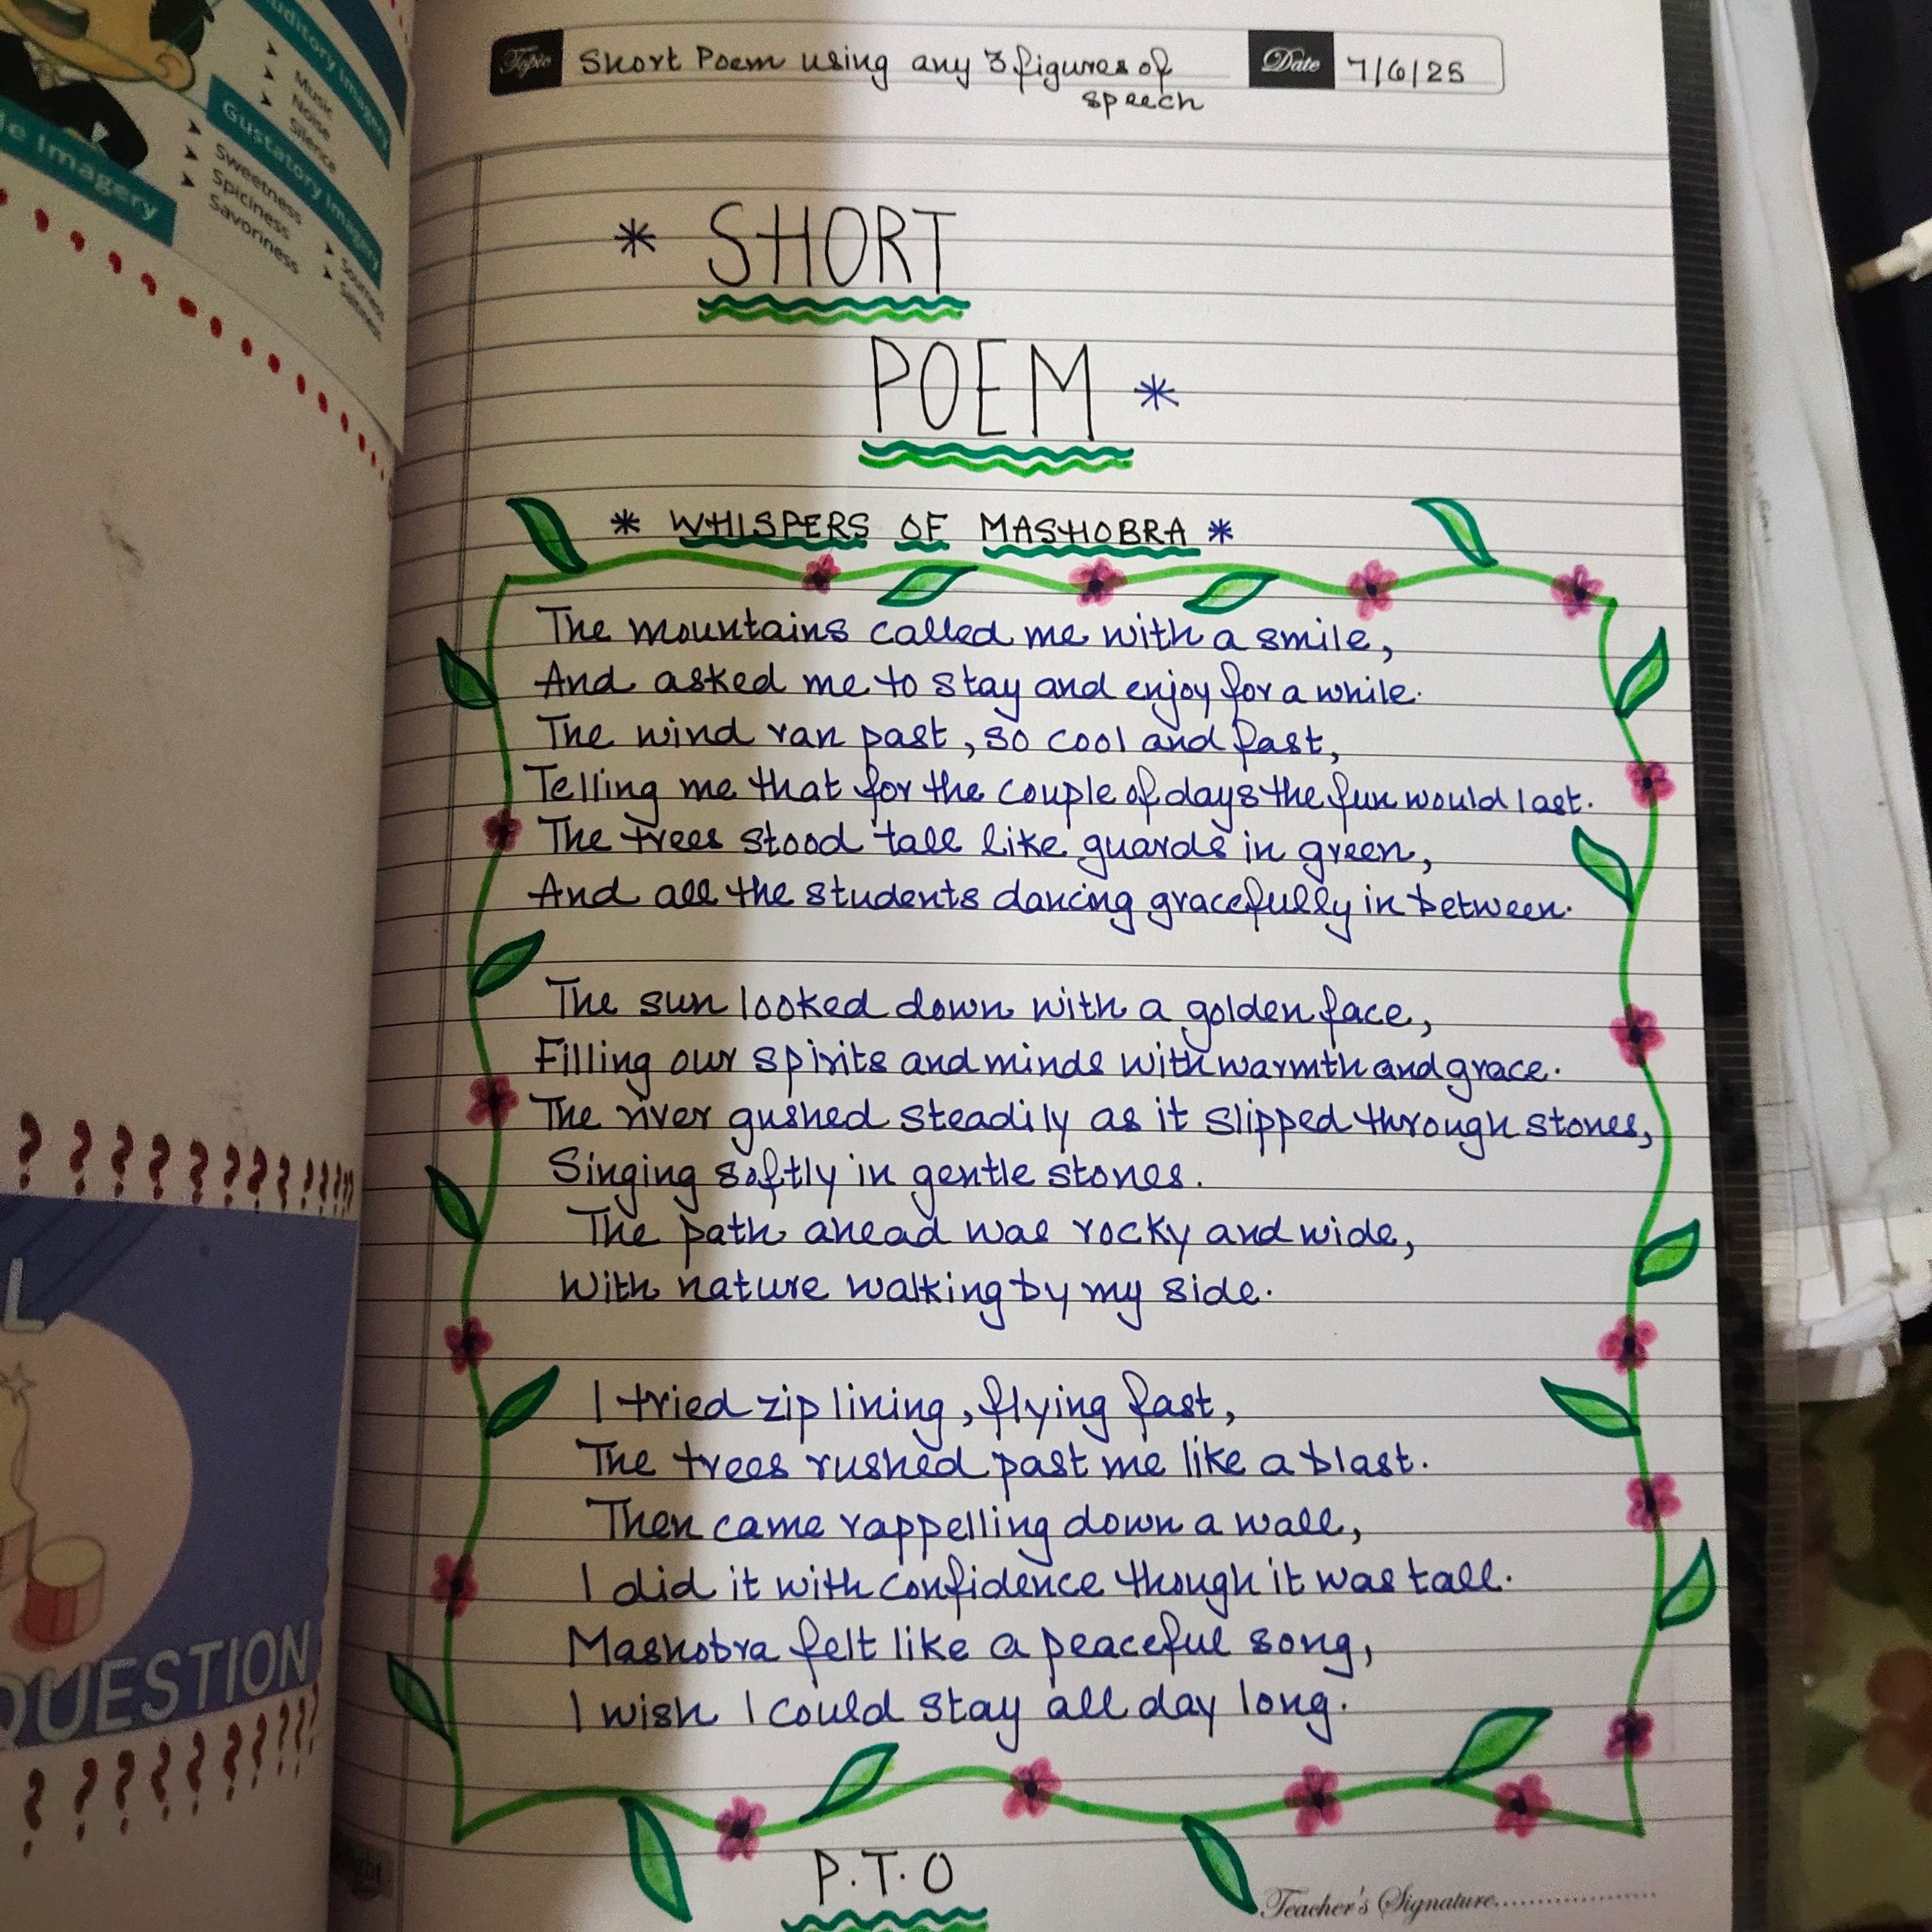 uditory Imagery
Music
Noise
Silence
le Imagery
Gustatory Imagery
Sweetness
Spiciness
Savoriness
Sourness
Saltiness
L
QUESTION
Topic Short Poem using any 3 figures of
speech
Date 7/6/25
* SHORT
POEM *
* WHISPERS OF MASHOBRA *
The mountains called me with a smile,
And asked me to stay and enjoy for a while.
The wind ran past, so cool and fast,
Telling me that for the couple of days the fun would last.
The trees stood tall like guards in green,
And all the students dancing gracefully in between.
The sun looked down with a golden face,
Filling our spirits and minds with warmth and grace.
The river gushed steadily as it slipped through stones,
Singing softly in gentle stones.
The path ahead was rocky and wide,
With nature walking by my side.
I tried zip lining, flying fast,
The trees rushed past me like a blast.
Then came rappelling down a wall,
I did it with confidence though it was tall.
Mashobra felt like a peaceful song,
I wish I could stay all day long.
P.T.O
Teacher's Signature....................